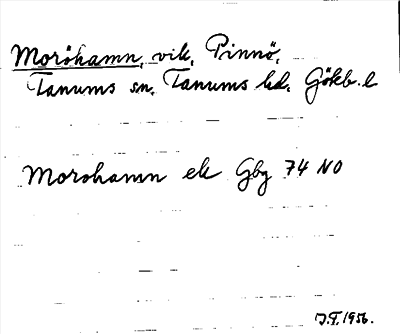 Moröhamn, vik, Pinnö,
Tanums sn, Tanums hd, Göteb. l
Morohamn ek Gbg 74 NO
J.I. 1956.